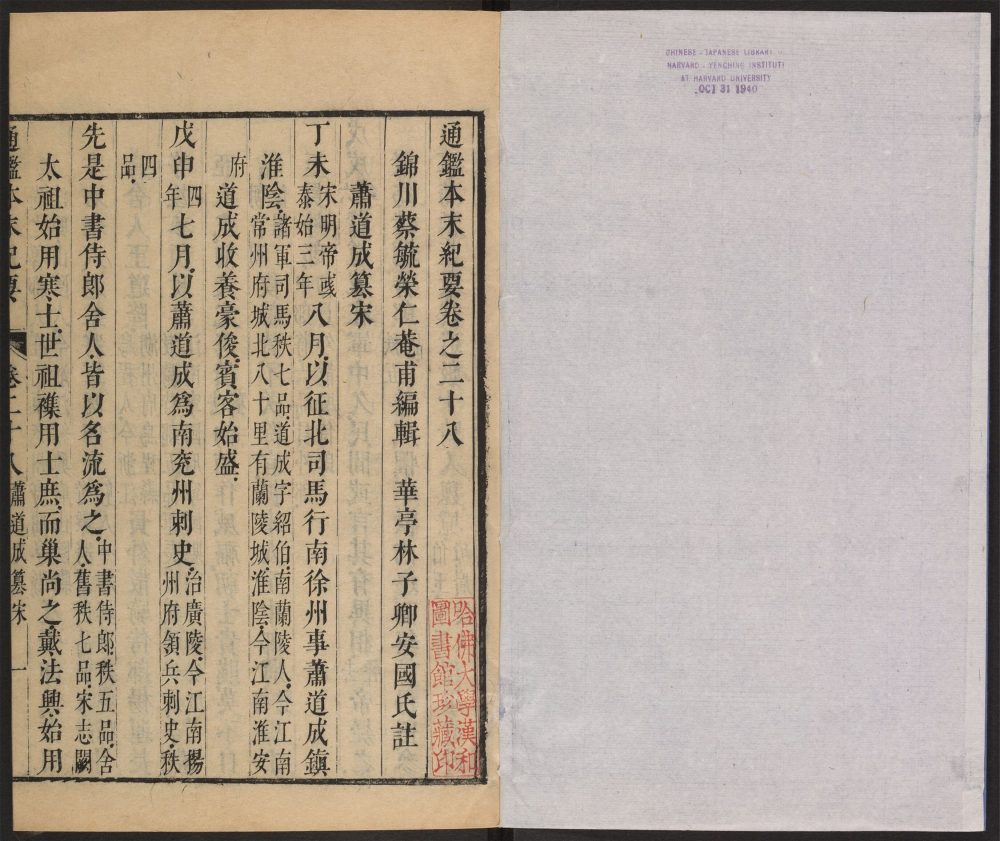 CHINESE - JAPANESE LIBRARY
HARVARD - YENCHING INSTITUTE
AT HARVARD UNIVERSITY
OCT 31 1940
通鑑本末紀要卷之二十八
錦川蔡毓榮仁菴甫編輯 華亭林子卿安國氏註
哈佛大學漢和
圖書館珍藏印
蕭道成篡宋
丁未宋明帝彧泰始三年八月以征北司馬行南徐州事蕭道成鎮
淮陰諸軍司馬秩七品道成字紹伯南蘭陵人今江南常州府城北八十里有蘭陵城淮陰今江南淮安
府道成收養豪俊賓客始盛
戊申四年七月以蕭道成爲南兗州刺史治廣陵今江南揚州府領兵刺史秩
四品
先是中書侍郎舍人皆以名流爲之中書侍郎秩五品舍人舊秩七品宋志闕
太祖始用寒士世祖襍用士庶而巢尚之戴法興始用
通鑑本末紀要 卷二十八 蕭道成篡宋 一